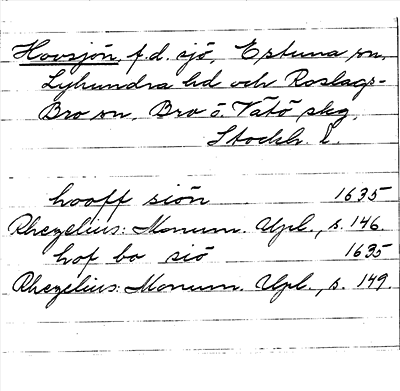 Hovsjön, f.d. sjö, Estuna sn,
Lyhundra hd och Roslags-
Bro sn, Bro o. Vätö skg,
Stockh. l.
hooff siön 1635
Rhezelius: Monum. Upl., s. 146.
hof bo siö 1635
Rhezelius: Monum. Upl., s. 149.